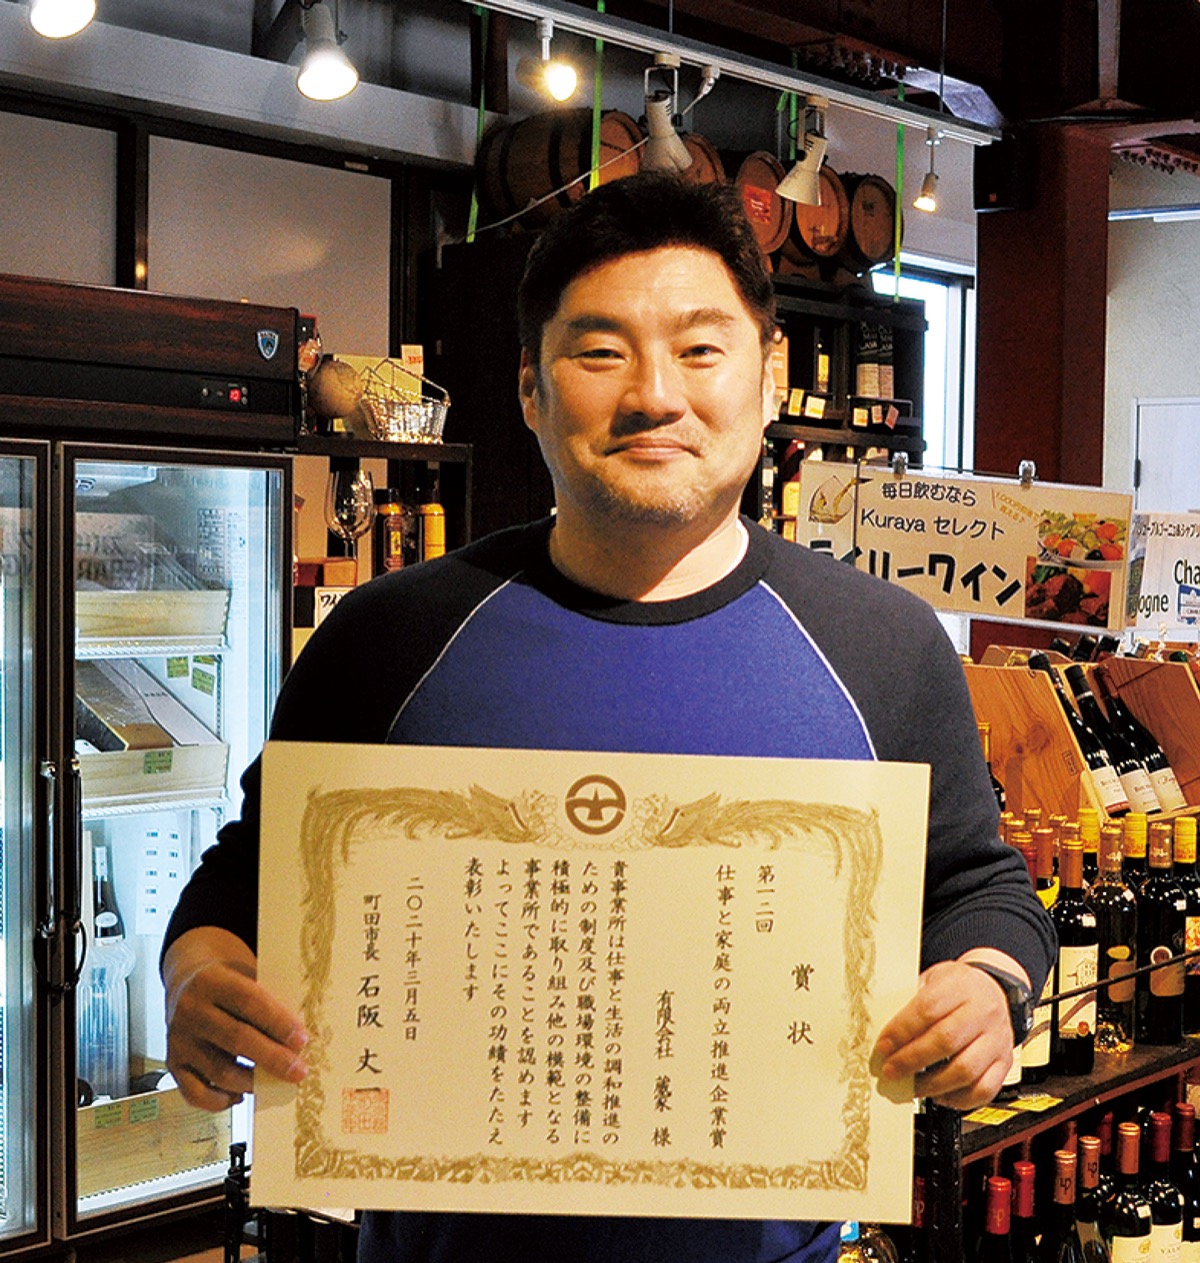 賞状
第一二回
仕事と家庭の両立推進企業賞
有限会社 蔵家 様
貴事業所は仕事と生活の調和推進の
ための制度及び職場環境の整備に
積極的に取り組み他の模範となる
事業所であることを認めます
よってここにその功績をたたえ
表彰いたします
二〇二十年三月五日
町田市長 石阪 丈一
毎日飲むなら
Kuraya セレクト
デイリーワイン
Cha
ogne
ワイン